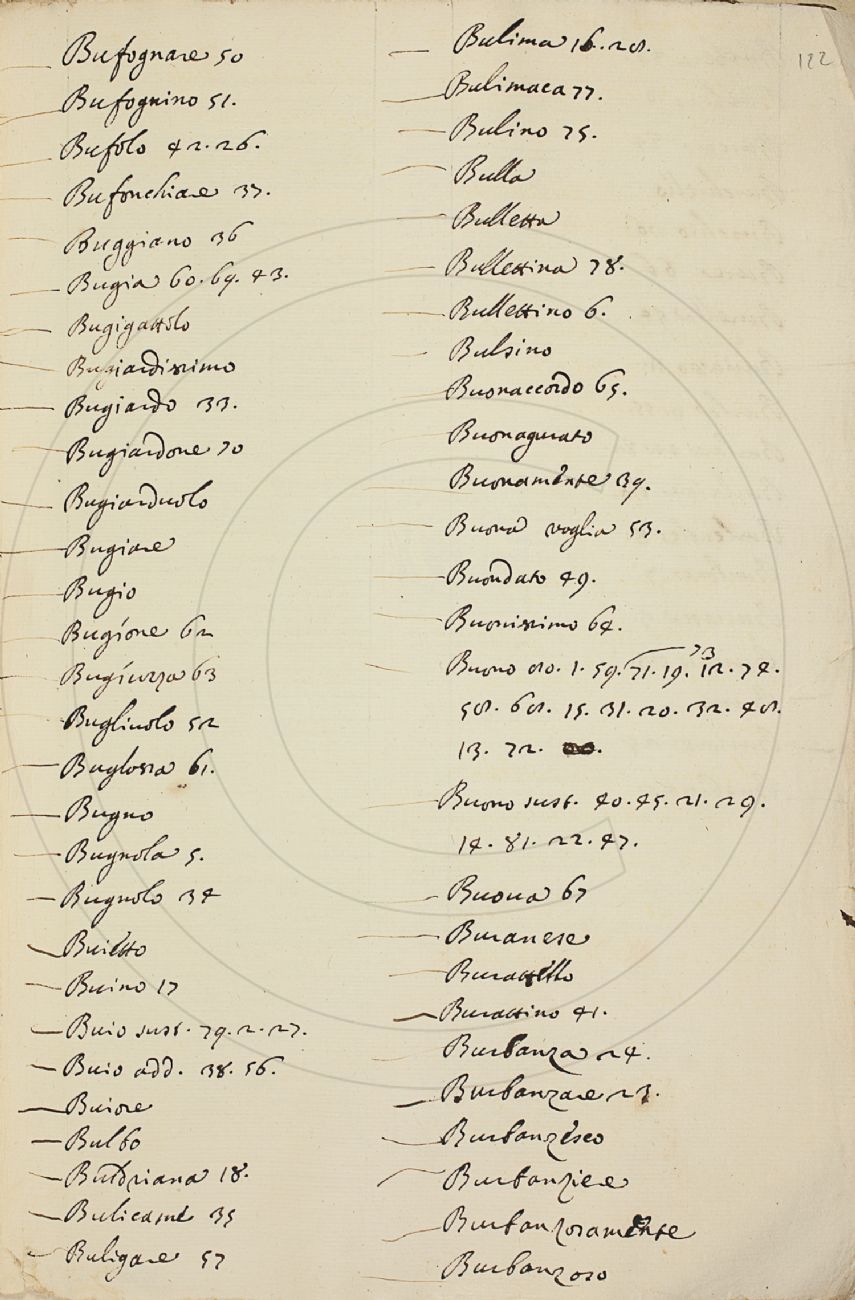 122
Bufognare 50
Bufognino 51.
Bufolo 42. 26.
Bufonchiare 37.
Buggiano 36
Bugia 60. 69. 43.
Bugigattolo
Bugiardissimo
Bugiardo 33.
Bugiardone 70
Bugiarduolo
Bugiare
Bugio
Bugíone 62
Bugíuzza 63
Buglivolo 52
Buglossa 61.
Bugno
Bugnola 5.
Bugnolo 34
Buietto
Buino 17
Buio sust. 79. 2. 27.
Buio add. 38. 56.
Buiore
Bulbo
Buldriana 18.
Bulicame 35
Buligare 57
Bulima 16. 28.
Bulimaca 77.
Bulino 75.
Bulla
Bulletta
Bullettina 78.
Bullettino 6.
Bulsino
Buonaccordo 65.
Buonagurato
Buonamente 39.
Buona voglia 53.
Buondato 49.
Buonissimo 64.
Buono 1. 59. 71. 19. 73 12. 74.
58. 68. 15. 31. 20. 32. 48.
13. 72.
Buono sust. 40. 45. 21. 29.
14. 81. 22. 47.
Buova 67
Buranese
Burattello
Burattino 41.
Burbanza 24.
Burbanzare 23.
Burbanzesco
Burbanziere
Burbanzosamente
Burbanzoso